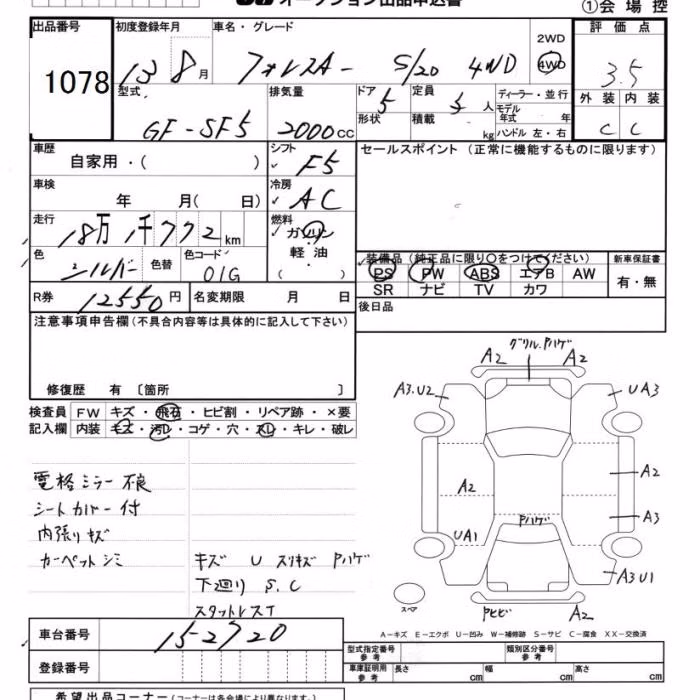 オークション出品申込書
①会場控
出品番号
1078
初度登録年月
13 8月
車名・グレード
フォレスター S/20 4WD
2WD
4WD
評価点
3.5
外装 内装
C C
型式
GF-SF5
排気量
2000cc
ドア 5
形状
定員 5人
積載 kg
ディーラー・並行
モデル年式 年
ハンドル 左・右
車歴
自家用・( )
シフト
F5
セールスポイント (正常に機能するものに限ります)
車検
年 月( 日)
冷房
AC
走行
18万 1千772km
燃料
ガソリン
軽油
( )
色
シルバー
色替
色コード
01G
装備品 (純正品に限り○をつけてください)
新車保証書
PS PW ABS エアB AW
SR ナビ TV カワ
有・無
R券 12550円
名変期限 月 日
後日品
注意事項申告欄 (不具合内容等は具体的に記入して下さい)
修復歴 有 〔箇所 〕
検査員記入欄
FW キズ・飛石・ヒビ割・リペア跡・×要
内装 キズ・汚レ・コゲ・穴・スレ・キレ・破レ
電格ミラー不良
シートカバー付
内張りキズ
カーペットシミ
キズ U スリキズ Pハゲ
下廻り S.C
スタットレスT
グリル.Pハゲ
A2 A2
A3.U2 UA3
A2 A2
A3
Pハゲ
UA1
A3U1
スペア
Pヒビ A2
A-キズ E-エクボ U-凹み W-補修跡 S-サビ C-腐食 XX-交換済
車台番号
15-2720
登録番号
型式指定番号 参考
類別区分番号 参考
車庫証明用 参考
長さ cm
幅 cm
高さ cm
希望出品コーナー (コーナーは各会場により異なります)